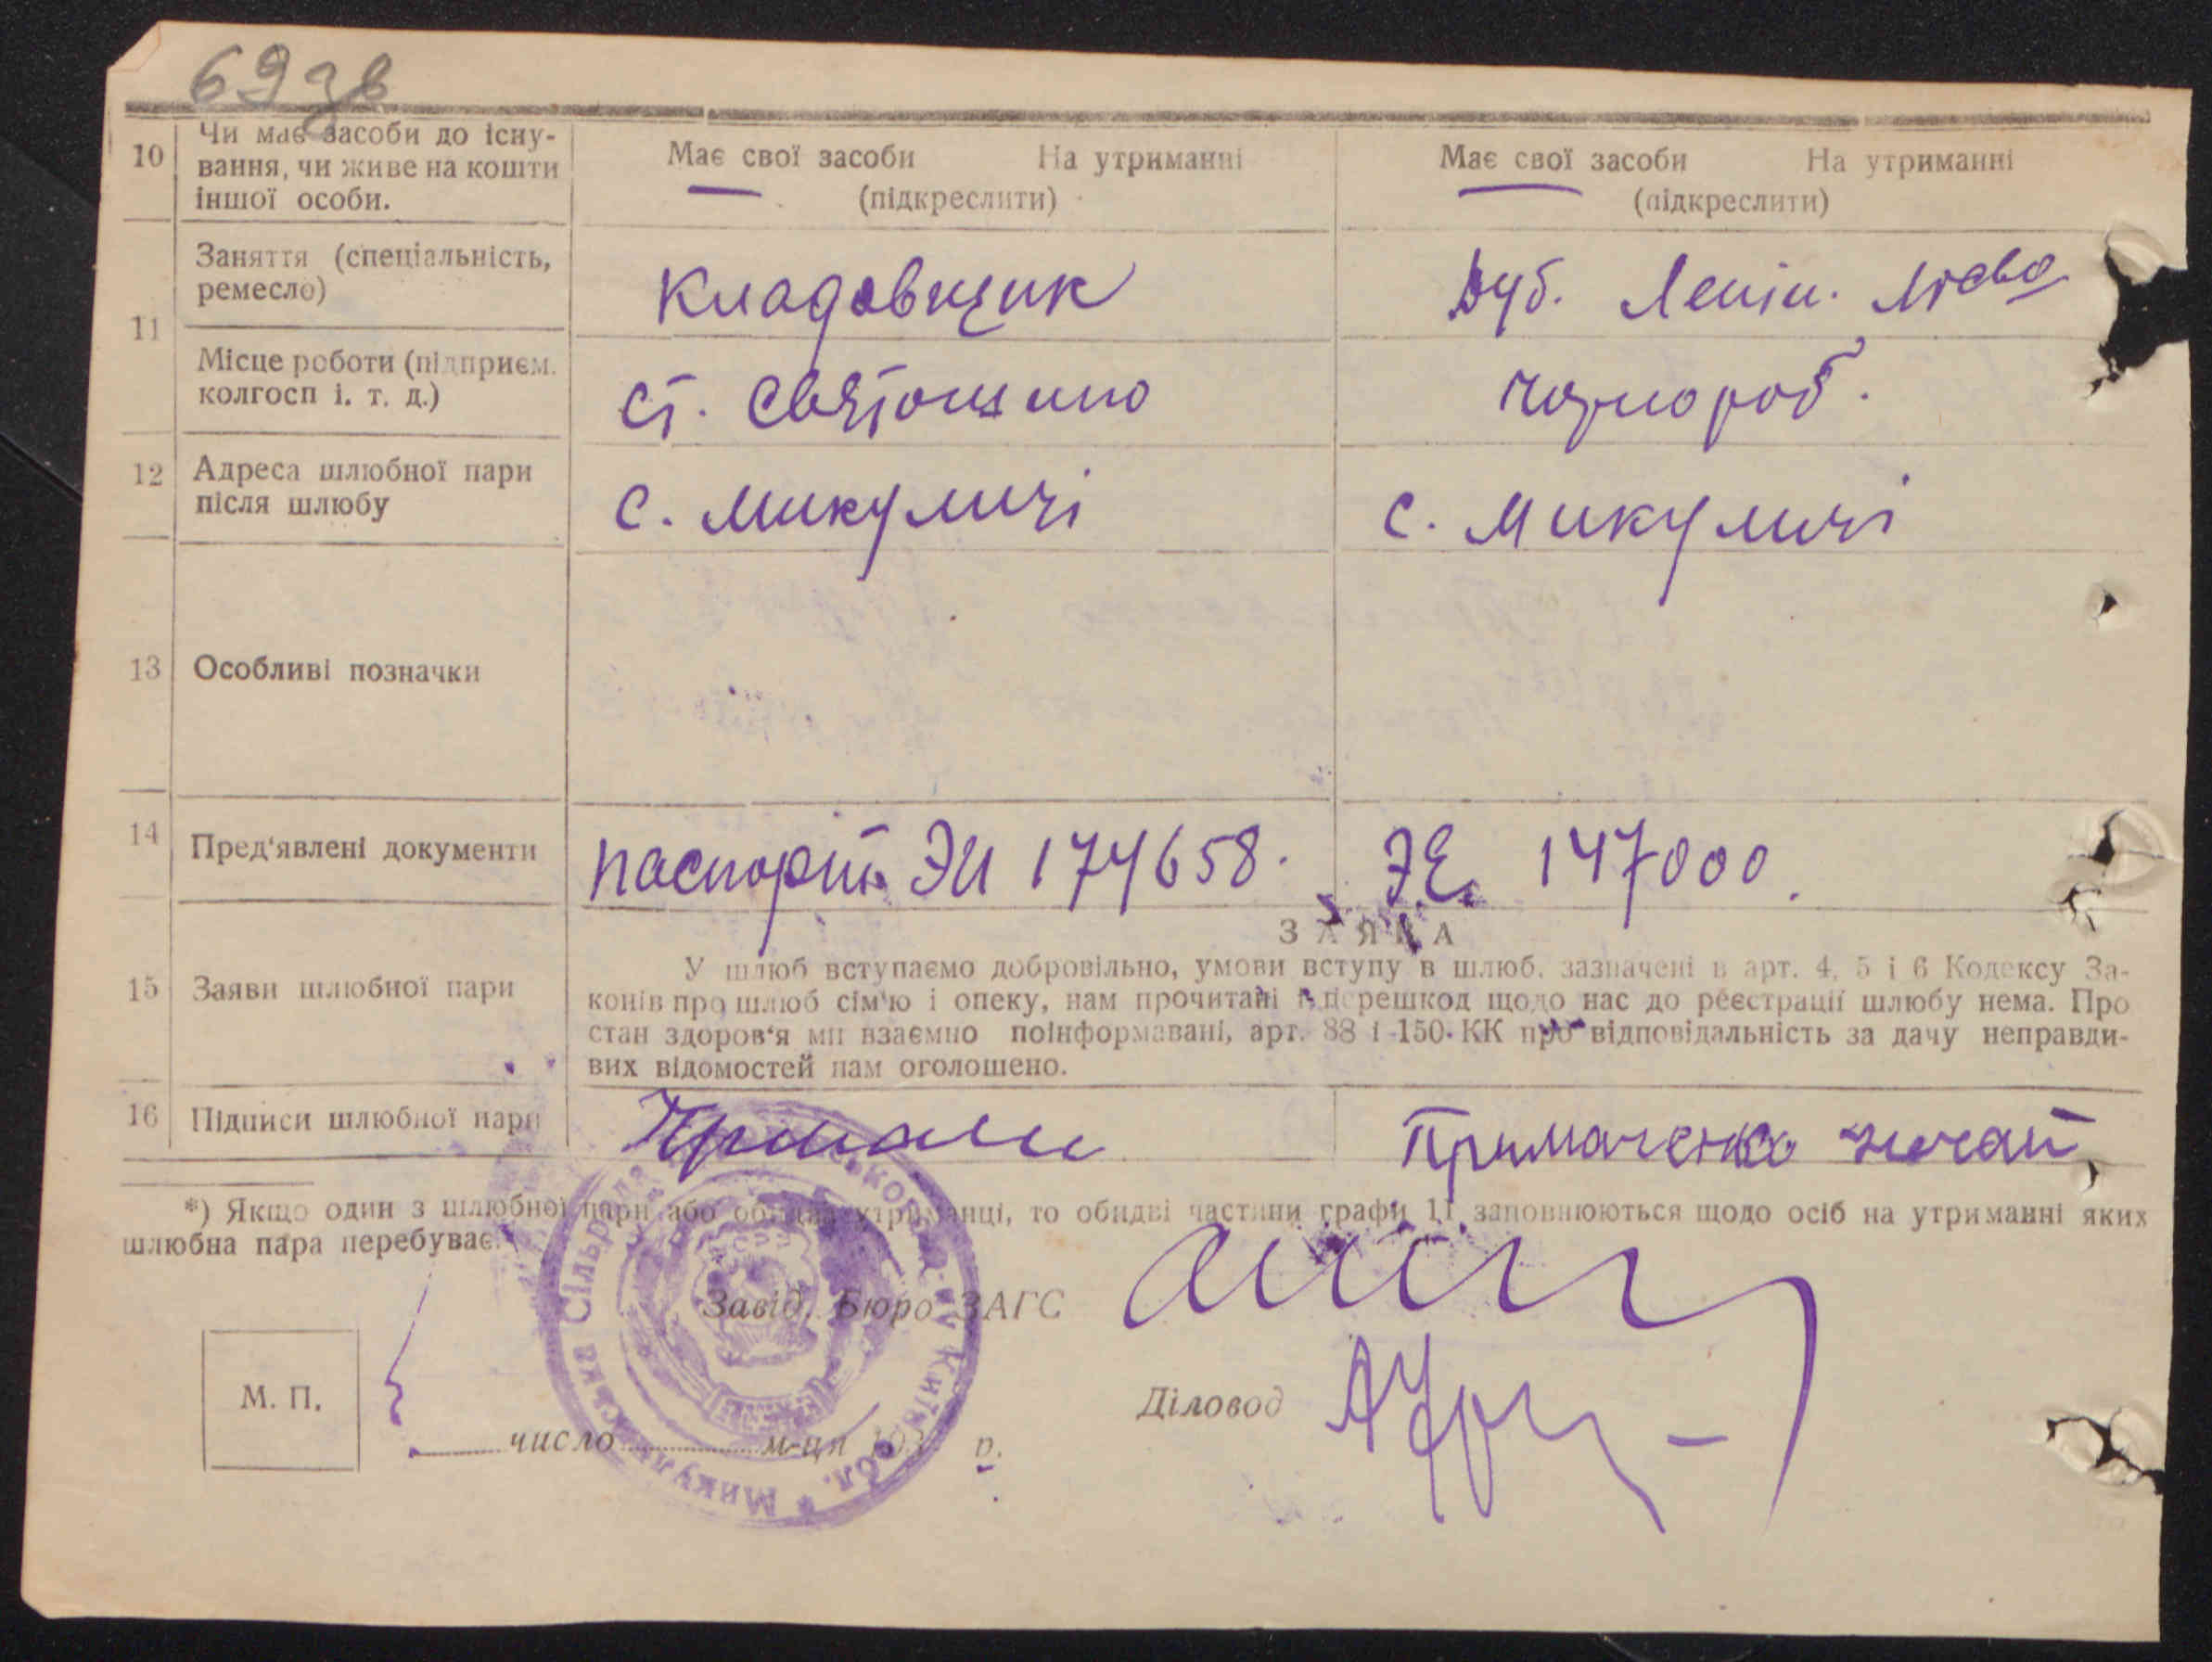 69 зв
10
Чи має засоби до існу-
вання, чи живе на кошти
іншої особи.
Має свої засоби На утриманні
(підкреслити)
Має свої засоби На утриманні
(підкреслити)
11
Заняття (спеціальність,
ремесло)
Кладовщик
Буб. Ленін.
Місце роботи (підприєм.
колгосп і. т. д.)
ст. Святошино
чорнороб.
12
Адреса шлюбної пари
після шлюбу
с. Микуличі
с. Микуличі
13
Особливі позначки
14
Пред'явлені документи
паспорт ЭИ 174658.
ЭЕ. 147000.
ЗАЯВА
15
Заяви шлюбної пари
У шлюб вступаємо добровільно, умови вступу в шлюб, зазначені в арт. 4, 5 і 6 Кодексу За-
конів про шлюб сім'ю і опеку, нам прочитані і перешкод щодо нас до реєстрації шлюбу нема. Про
стан здоров'я ми взаємно поінформавані, арт. 88 і 150 КК про відповідальність за дачу неправди-
вих відомостей нам оголошено.
16
Підписи шлюбної пари
Примаченко
*) Якщо один з шлюбної пари або обидва утриманці, то обидві частини графи 11 заповнюються щодо осіб на утриманні яких
шлюбна пара перебуває.
Завід. Бюро ЗАГС
М. П.
Діловод
число м-ця 193 р.
Сільрада
Київ обл.